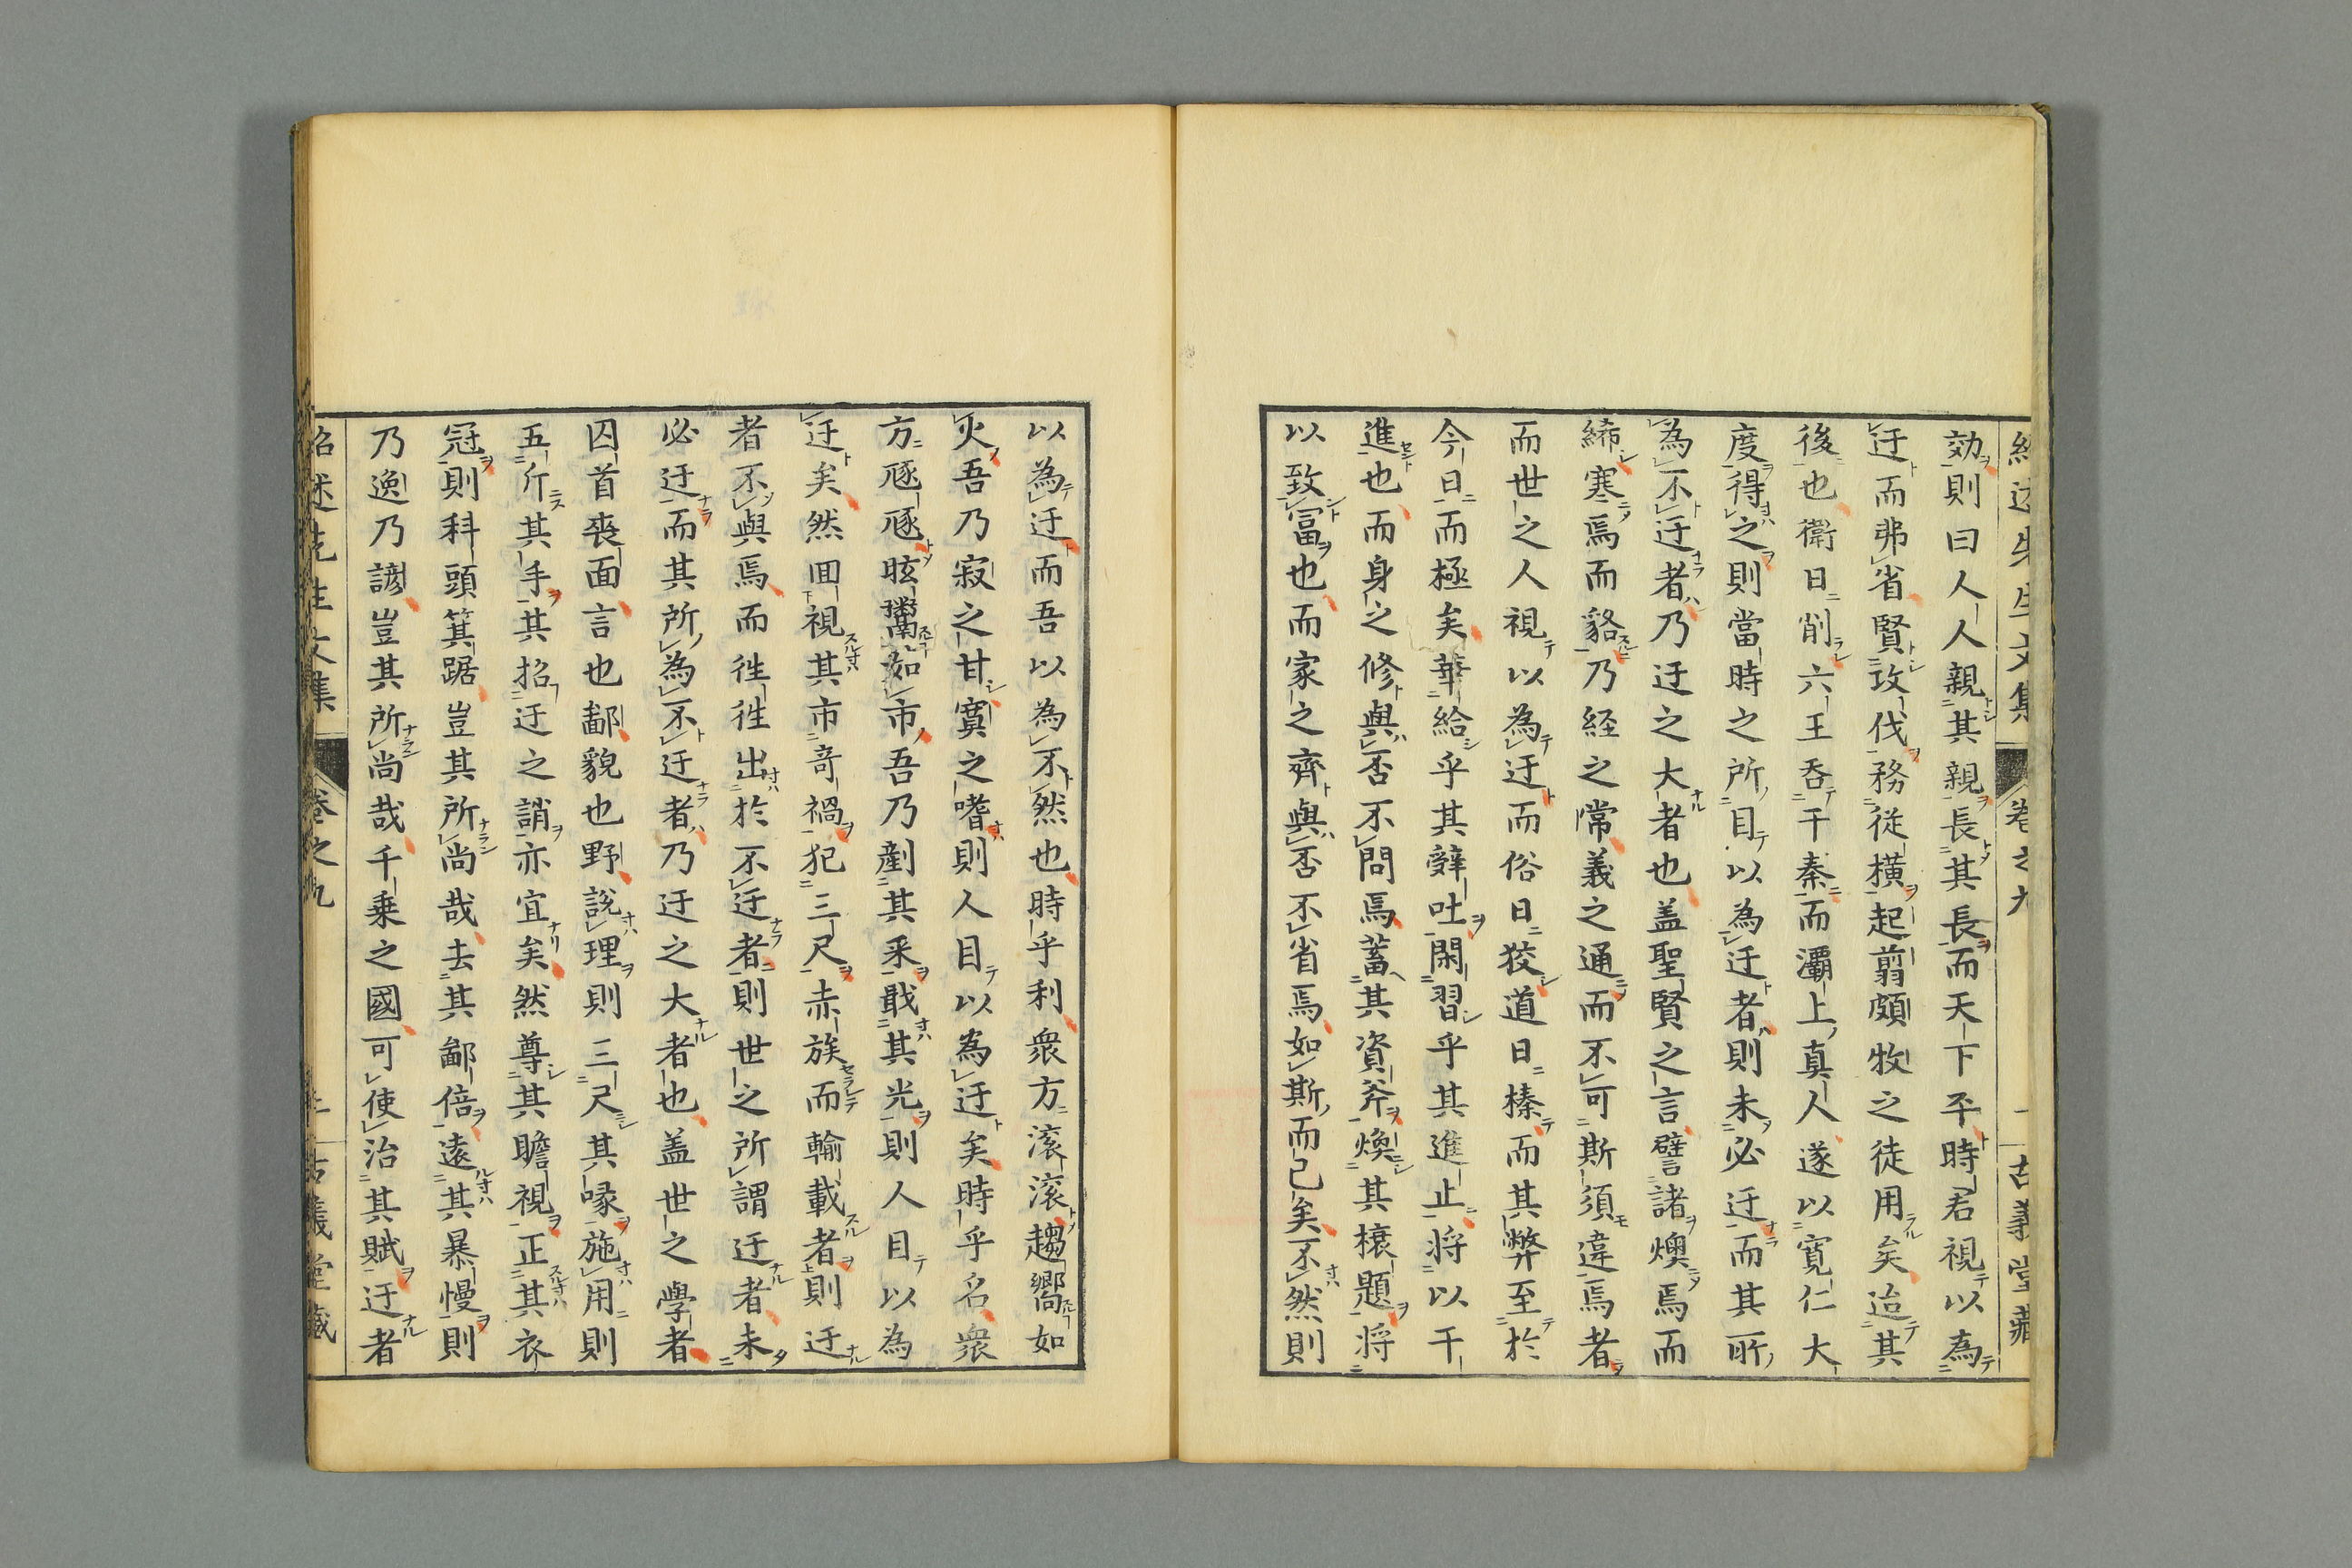 紹述先生文集 卷之九 古義堂藏
効則曰人人親其親長其長而天下平時君視以為
迂而弗省賢攻伐務從橫起翦頗牧之徒用矣迨其
後也衛日削六王吞于秦而灞上真人遂以寬仁大
度得之則當時之所目以為迂者則未必迂而其所
為不迂者乃迂之大者也盖聖賢之言譬諸燠焉而
絺寒焉而貉乃経之常義之通而不可斯須違焉者
而世之人視以為迂而俗日狡道日榛而其弊至於
今日而極矣華給乎其辭吐閑習乎其進止將以干
進也而身之修與否不問焉蓄其資斧煥其榱題將
以致富也而家之齊與否不省焉如斯而已矣不然則
以為迂而吾以為不然也時乎利衆方滚滚趨嚮如
火吾乃寂之甘寞之嗜則人目以為迂矣時乎名衆
方豗豗眩鬻如市吾乃剷其采戢其光則人目以為
迂矣然回視其市竒禍犯三尺赤族而輸載者則迂
者不與焉而徃徃出於不迂者則世之所謂迂者未
必迂而其所為不迂者乃迂之大者也盖世之學者
囚首喪面言也鄙貌也野說理則三尺其喙施用則
五斤其手其招迂之誚亦宜矣然尊其瞻視正其衣
冠則科頭箕踞豈其所尚哉去其鄙倍遠其暴慢則
乃逸乃諺豈其所尚哉千乗之國可使治其賦迂者
紹述先生文集 卷之九 古義堂藏